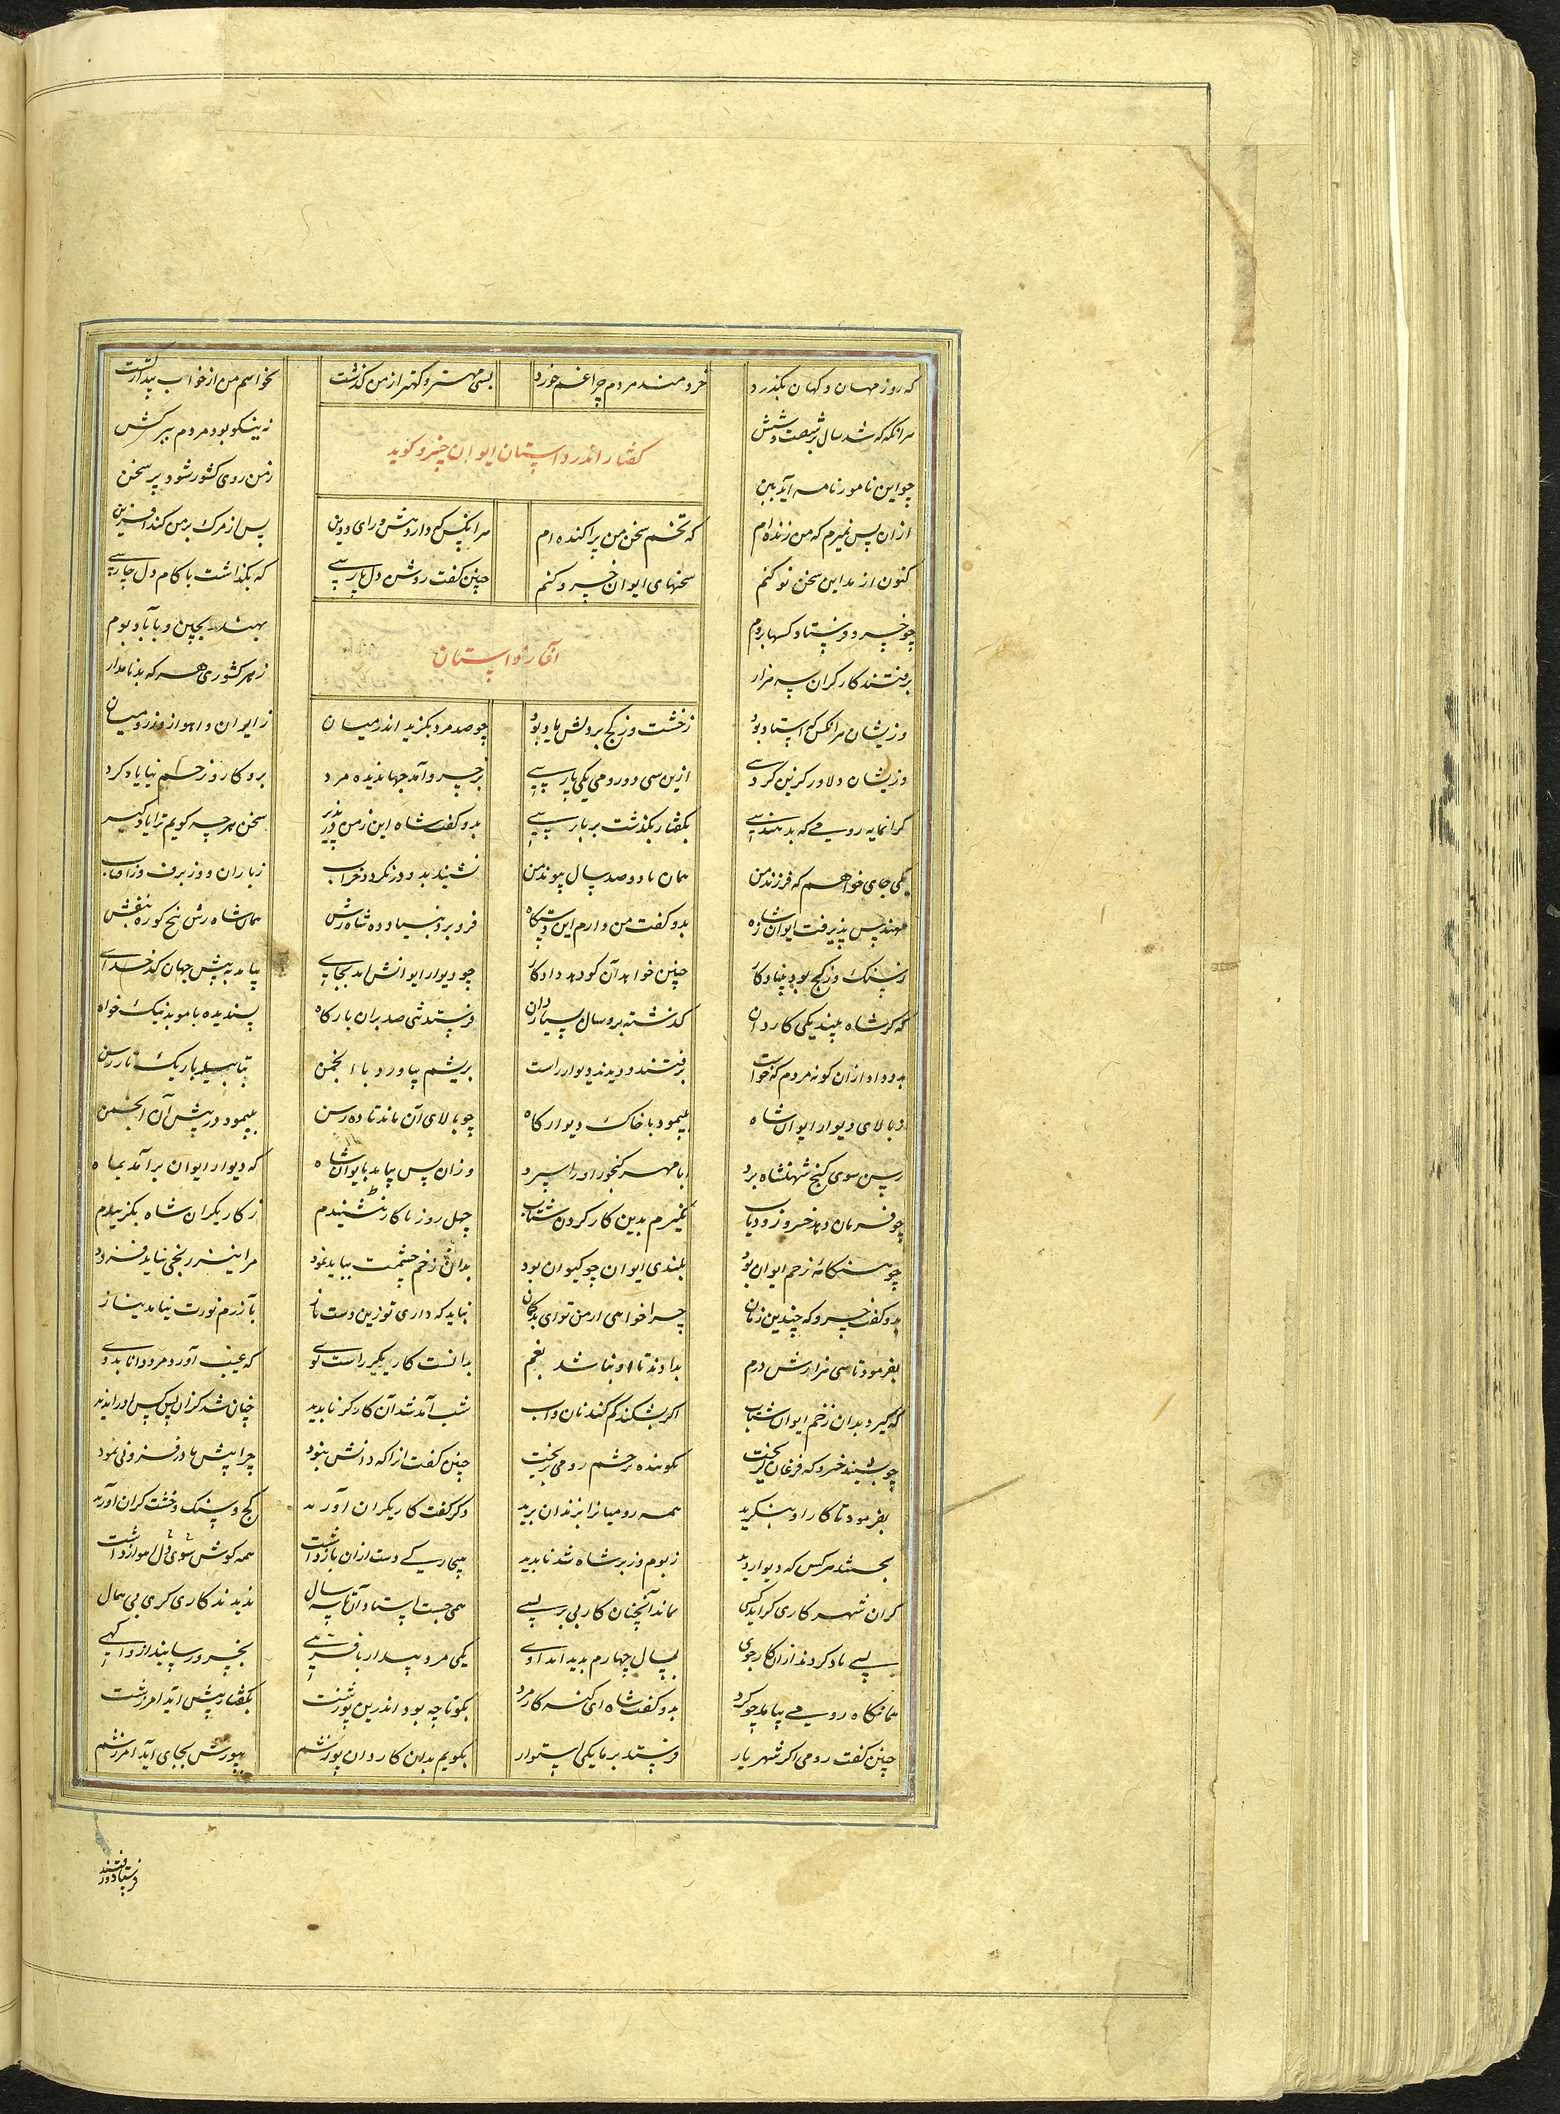 که روز مهان و کهان بگذرد خردمند مردم چرا غم خورد بسی مهتر و کهتر از من گذشت نخواهم من از خواب بیدار گشت
هرانگه که شد سال بر شصت و شش نه نیکو بود مردم پیرکش
گفتار اندر داستان ایوان خسرو گوید
چو این نامور نامه آید ببن ز من روی کشور شود پر سخن
ازان پس نمیرم که من زنده‌ام که تخم سخن من پراکنده‌ام هر انکس که دارد هش و رای و دین پس از مرگ بر من کند افرین
کنون از مداین سخن نو کنم سخنهای ایوان خسرو کنم چنین گفت روشن دل پارسی که بگذاشت با کام دل چارسی
چو خسرو فرستاد کسها بروم بهند و بچین و بآباد بوم
آغاز داستان
برفتند کارگران سه هزار ز هر کشوری هر که بد نامدار
وزیشان هر انکس که استاد بود ز خشت و ز گچ بر دلش یاد بود چو صد مرد بگزید اندر میان ز ایوان و اهواز وز رومیان
وزیشان دلاور گزین کرد سی ازین سی دو رومی یکی پارسی بر خسرو آمد جهاندیده مرد برو کار و زخم بنا یاد کرد
گرانمایه رومی که بد هندسی بگفتار بگذشت بر پارسی بدو گفت شاه این ز من درپذیر سخن هرچه گویم ترا یادگیر
یکی جای خواهم که فرزند من همان تا دو صد سال پیوند من نشیند بدو در نگردد خراب ز باران و وز برف و ز افتاب
مهندس پذیرفت ایوان شاه بدو گفت من دارم این دستگاه فرو برد بنیاد ده شاه رش همان شاه رش پنج کرده برش
ز سنگ و ز گچ بود بنیاد کار چنین خواهد آن کو دهد داد کار چو دیوار ایوانش امد بجای بیامد به پیش جهان کدخدای
که گر شاه بیند یکی کاردان گذشته برو سال بسیار دان فرستد تنی صد بران بارگاه پسندیده با موبد نیک خواه
بدو داد ازان گونه مردم که خواست برفتند و دیدند دیوار راست بریشم بیاورد با انجمن بتابید باریک تا رسن
ز بالای دیوار ایوان شاه بپیمود با خاک دیوار گاه چو بالای آن ماند تا ده رسن بپیمود در پیش آن انجمن
رسن سوی گنج شهنشاه برد ابا مهر گنجور او را سپرد وزان پس بیامد بایوان شاه که دیوار ایوان برآمد بماه
چو فرمان دهد خسرو زودیاب نگیرم بدین کار کردن شتاب چهل روز تا کار بنشیندم ز کاریگران شاه بگزیندم
چو هنگامهٔ زخم ایوان بود بلندی ایوان چو کیوان بود بدان زخم خشمت نباید نمود مرا نیز رنجی نباید فزود
بدو گفت خسرو که چندین زمان چرا خواهی از من تو ای بدگمان نباید که داری تو زین دست باز بآزرم نورت نیاید نیاز
بفرمود تا سی هزارش درم بدادند تا او نباشد بغم بدانست کاریگر راست گوی که عیب آورد مرد دانا بدوی
که گیرد بدان زخم ایوان شتاب اگر بشکند کم کند نان و آب شب آمد شد آن کارگر ناپدید چنان شد کزان پس کس او را ندید
چو بشنید خسرو که فرغان گریخت بگوینده بر خشم رومی بریخت چنین گفت آنرا که دانش نبود چرا پیش ما در فزونی نمود
بفرمود تا کار او بنگرید همه رومیانرا بزندان برید دگر گفت کاریگران آورید گچ و سنگ و خشت گران آورید
بجستند هرکس که دیوار دید ز بوم و ز بر شاه شد ناپدید بیچارگی دست ازان باز داشت همه گوش سوی دل هواز داشت
کزان شهر کاری گر آید کسی نماند آنچنان کار بی بر بسی همی جست استاد آن تا سه سال ندیدند کاری گری بی همال
بسی یاد کردند ازان کارجوی بسال چهارم پدید امد اوی یکی مرد بیدار با فرهی بخسرو رسانید ازو آگهی
همانگاه رومی بیامد چو گرد بدو گفت شاه ای گنه کار مرد بگو تا چه بود اندرین پوزشت بگفتار پیش آید امرزشت
چنین گفت رومی اگر شهریار فرستد بر ما یکی استوار بگویم بدان کاردان پوزشم بپوزش بجای آید امرزشم
فرستاد و رفتند